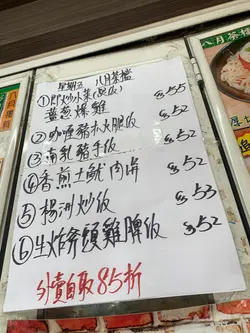 星期五 八月茶檔
①即炒小菜(跟飯)
薑葱爆雞 $55
②咖喱豬扒火腿飯 $52
③南乳豬手飯 $52
④香煎土魷肉餅 $52
⑤楊洲炒飯 $53
⑥生炸斧頭雞脾飯 $52
外賣自取85折
八月茶檔